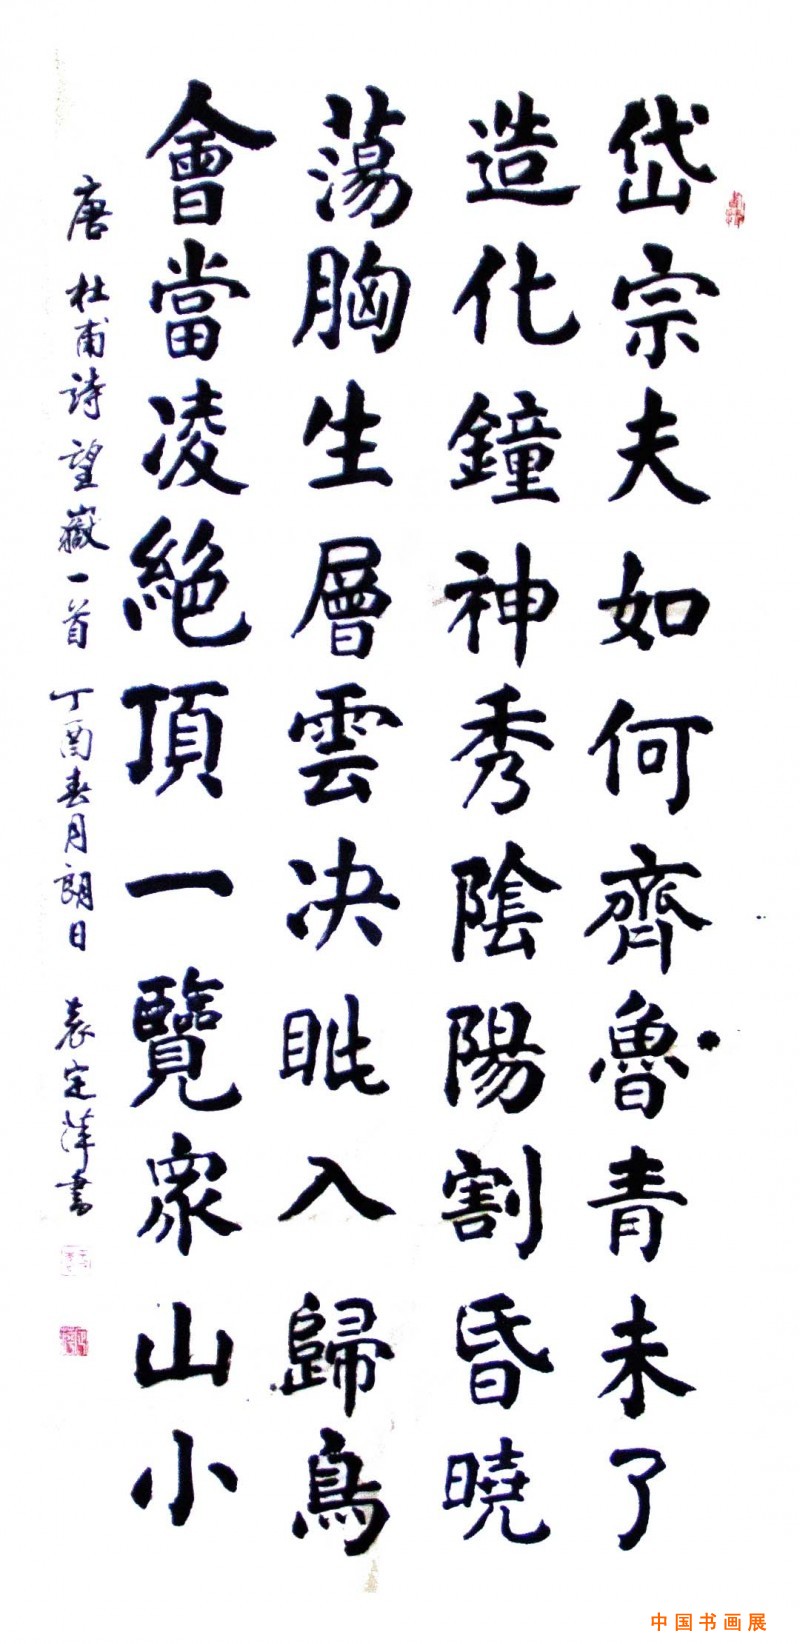 岱宗夫如何齊魯青未了
造化鐘神秀陰陽割昏曉
蕩胸生層雲决眦入歸鳥
會當凌絕頂一覽眾山小
唐 杜甫詩望嶽一首 丁酉春月朗日 袁定萍書
中国书画展